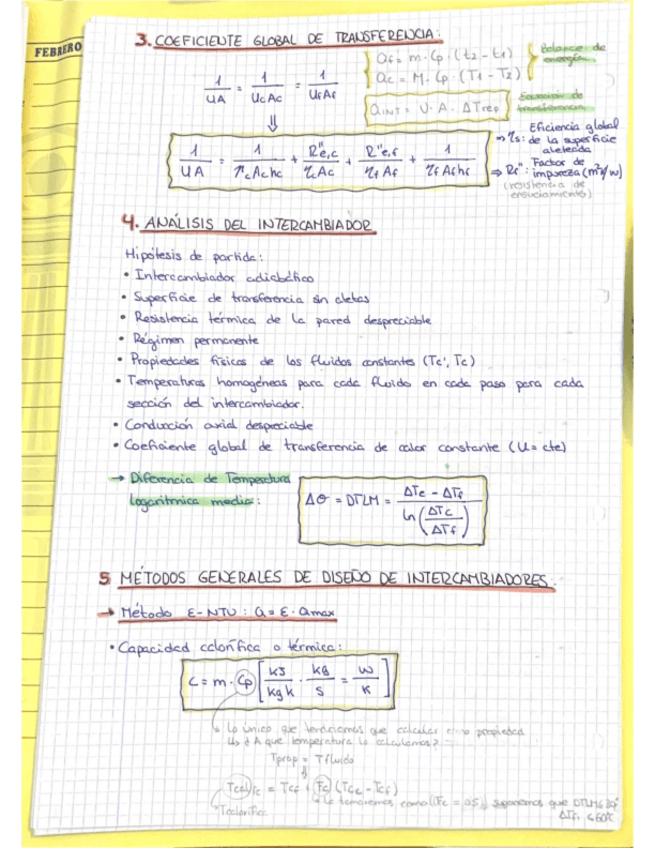 FEBRERO
3. COEFICIENTE GLOBAL DE TRANSFERENCIA:
1/UA = 1/UcAc = 1/UfAf
Qf = m · Cp · (t2 - t1)
Qc = M · Cp · (T1 - T2)
Balance de
energía
QINT = U · A · ΔTrep
Ecuación de
transferencia
⇓
1/UA = 1/ηcAchc + R"e,c/ηcAc + R"e,f/ηfAf + 1/ηfAfhf
Eficiencia global
⇒ ηs: de la superficie
aleteada
⇒ Rf": Factor de
impureza (m²k/w)
(resistencia de
ensuciamiento)
4. ANÁLISIS DEL INTERCAMBIADOR
Hipótesis de partida:
• Intercambiador adiabático
• Superficie de transferencia sin aletas
• Resistencia térmica de la pared despreciable
• Régimen permanente
• Propiedades físicas de los fluidos constantes (Tc', Tc)
• Temperaturas homogéneas para cada fluido en cada paso para cada
sección del intercambiador.
• Conducción axial despreciable
• Coeficiente global de transferencia de calor constante (U = cte)
→ Diferencia de Temperatura
logarítmica media:
ΔΘ = DTLM = ΔTc - ΔTf / ln(ΔTc/ΔTf)
5 MÉTODOS GENERALES DE DISEÑO DE INTERCAMBIADORES:
→ Método E-NTU: Q = E · Qmax
• Capacidad calorífica o térmica:
C = m · Cp [kJ/kg k · kg/s = w/k]
Lo único que tendríamos que calcular como propiedad
¿A que temperatura lo calculamos?
Tprop = Tfluido
⇓
Tcal)fc = Tcf + Fc (Tcc - Tcf)
Tcalorífica
Lo tomaremos como (Fc = 0,5) suponemos que DTLM
ΔTf ≤ 60°C